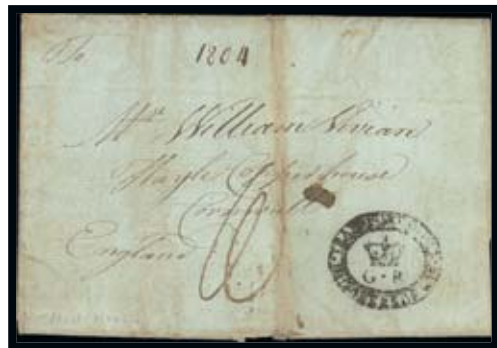 To
1804
Mr William Vivian
Hayle Copperhouse
Cornwall
England
G · R